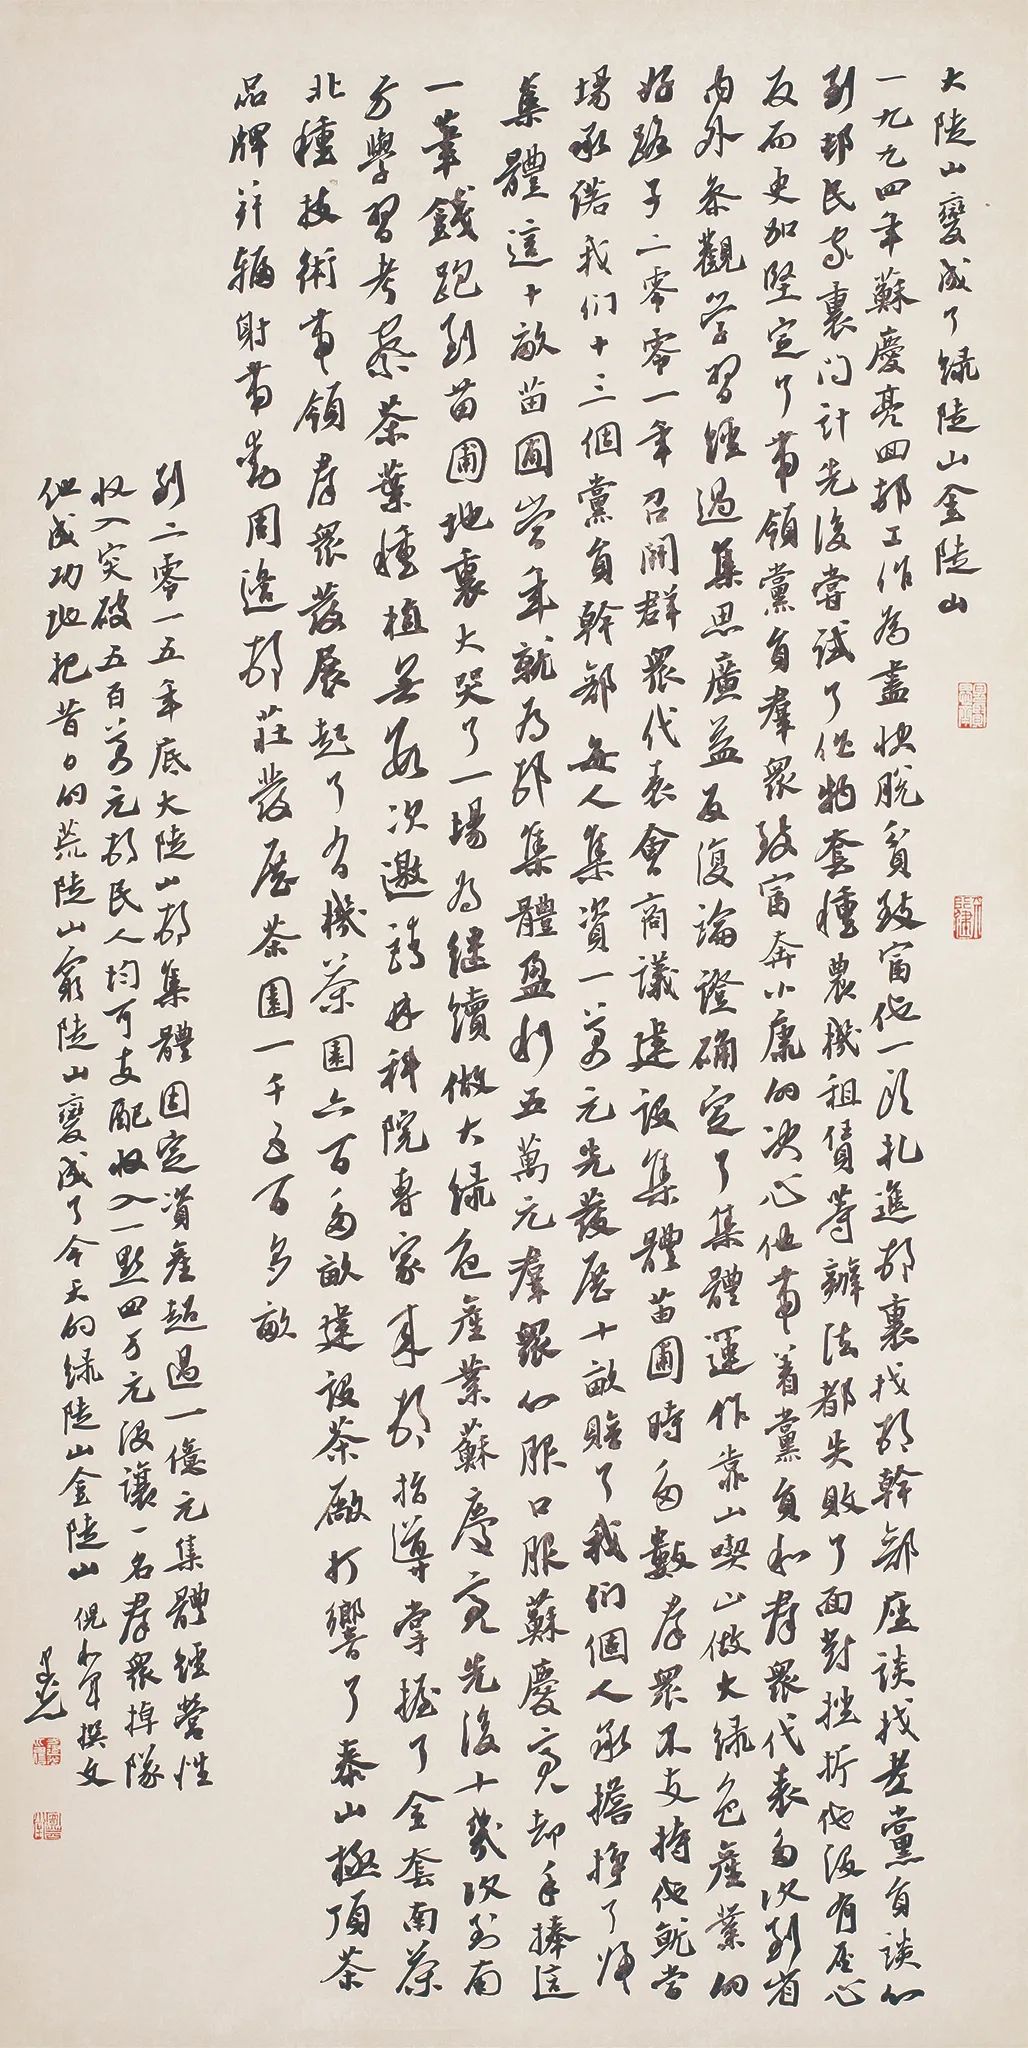 大陡山變成了綠陡山金陡山
一九九四年蘇慶亮回村工作為盡快脫貧致富他一頭扎進村裏找村幹部座談找老黨員談心
到村民家裏問計先後嘗試了作物套種農機租賃等辦法都失敗了面對挫折他沒有灰心
反而更加堅定了帶領黨員群衆致富奔小康的决心他帶着黨員和群衆代表多次到省
内外參觀学習經過集思廣益反復論證确定了集體運作靠山喫山做大綠色產業的
好路子二零零一年召開群衆代表會商議建設集體苗圃時多數群衆不支持他就當
場承偌我们十三個黨員幹部每人集資一萬元先發展十畝賠了我们個人承擔掙了归
集體這十畝苗圃當年就為村集體盈利五萬元群衆心服口服蘇慶亮却手捧這
一筆錢跑到苗圃地裏大哭了一場為继續做大綠色產業蘇慶亮先後十幾次到南
方學習考察茶葉種植無數次邀請林科院專家來村指導掌握了全套南茶
北種技術帶領群衆發展起了有機茶園六百多畝建設茶廠打響了泰山極頂茶
品牌并辐射帶動周邊村莊發展茶園一千五百多畝
到二零一五年底大陡山村集體固定資產超過一億元集體經營性
收入突破五百萬元村民人均可支配收入一點四万元没讓一名群衆掉隊
他成功地把昔日的荒陡山窮陡山變成了今天的綠陡山金陡山 倪和軍撰文